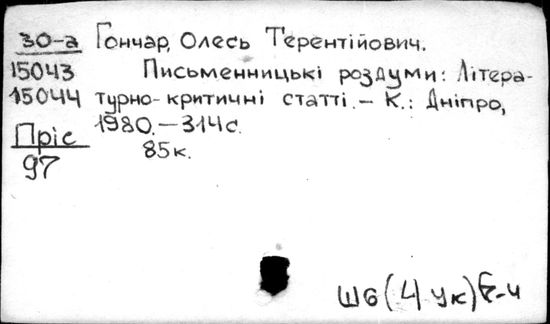 30-а Гончар, Олесь Терентійович.
15043 Письменницькі роздуми: Літера-
15044 турно-критичні статті.- К.: Дніпро,
1980.-314с.
Пріс 85к.
97
Ш6(4 Ук)